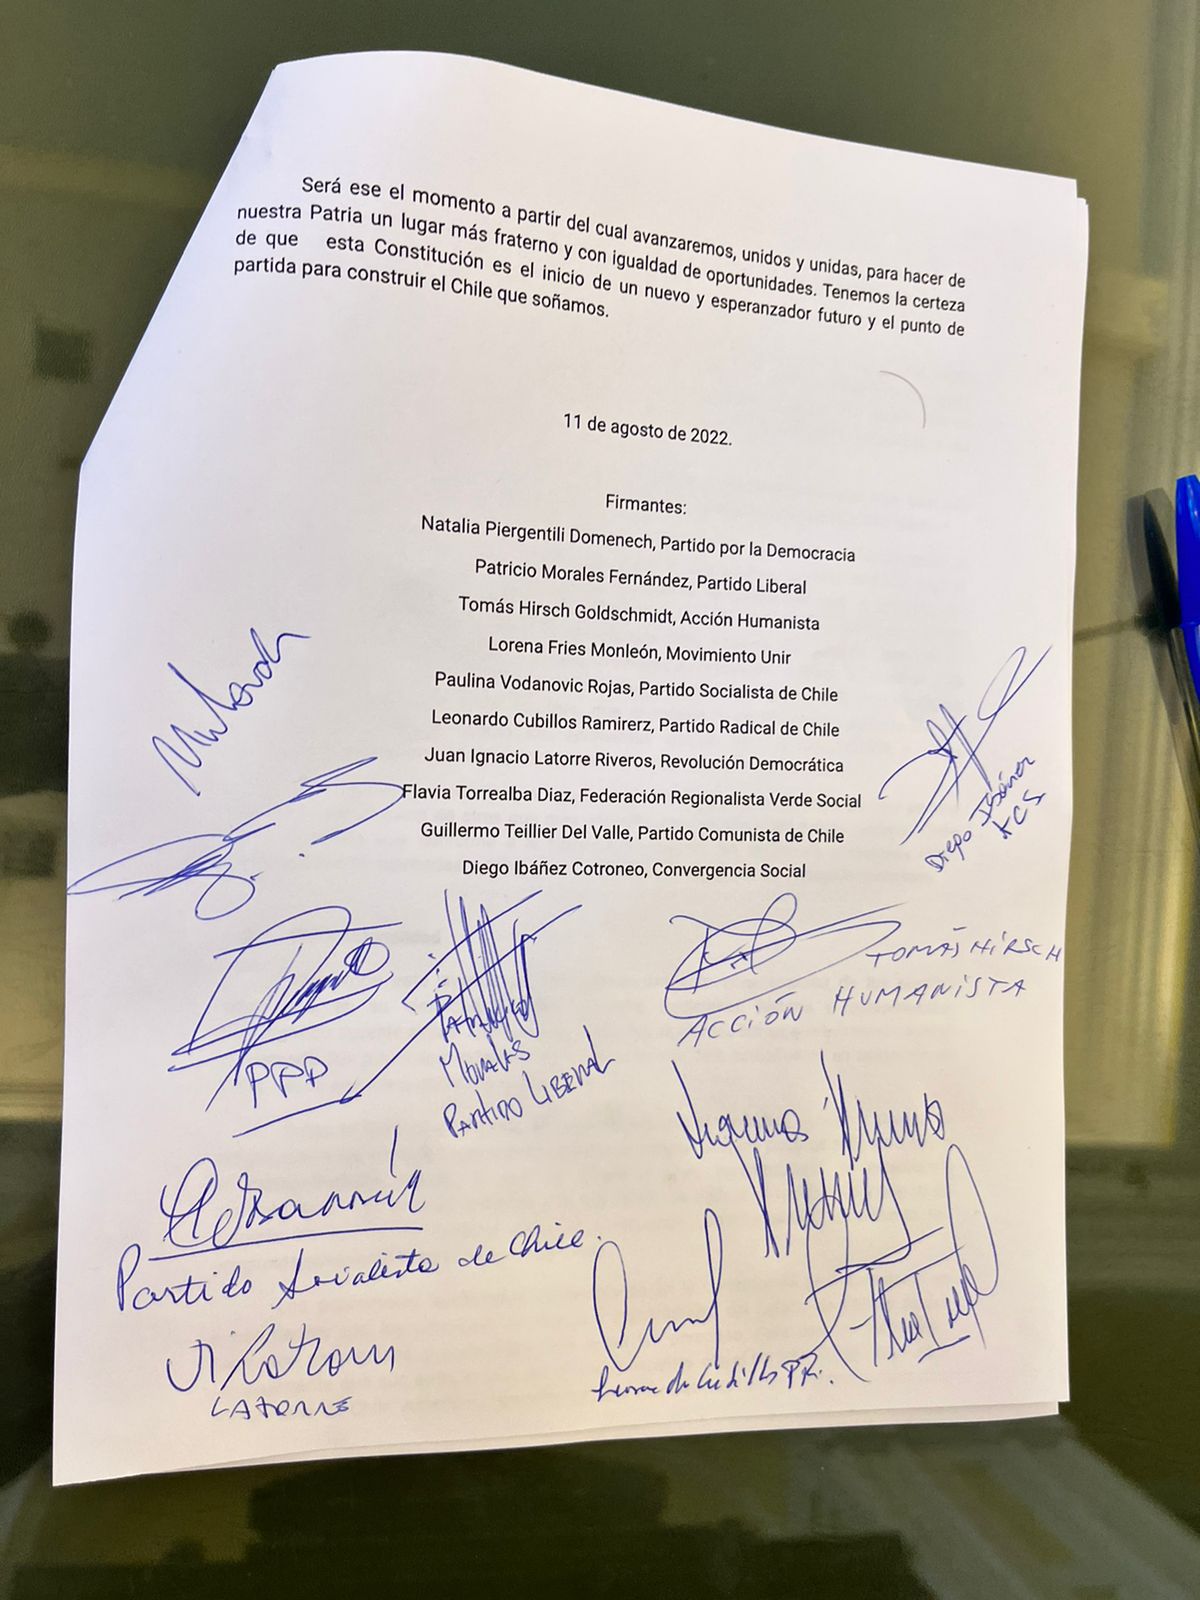 Será ese el momento a partir del cual avanzaremos, unidos y unidas, para hacer de
nuestra Patria un lugar más fraterno y con igualdad de oportunidades. Tenemos la certeza
de que esta Constitución es el inicio de un nuevo y esperanzador futuro y el punto de
partida para construir el Chile que soñamos.
11 de agosto de 2022.
Firmantes:
Natalia Piergentili Domenech, Partido por la Democracia
Patricio Morales Fernández, Partido Liberal
Tomás Hirsch Goldschmidt, Acción Humanista
Lorena Fries Monleón, Movimiento Unir
Paulina Vodanovic Rojas, Partido Socialista de Chile
Leonardo Cubillos Ramirerz, Partido Radical de Chile
Juan Ignacio Latorre Riveros, Revolución Democrática
Flavia Torrealba Diaz, Federación Regionalista Verde Social
Guillermo Teillier Del Valle, Partido Comunista de Chile
Diego Ibáñez Cotroneo, Convergencia Social
Diego Ibáñez
CS
TOMÁS HIRSCH
ACCIÓN HUMANISTA
PPD
PATRICIO
MORALES
PARTIDO LIBERAL
Partido Socialista de Chile.
LATORRE
Leonardo Cubillos PR.